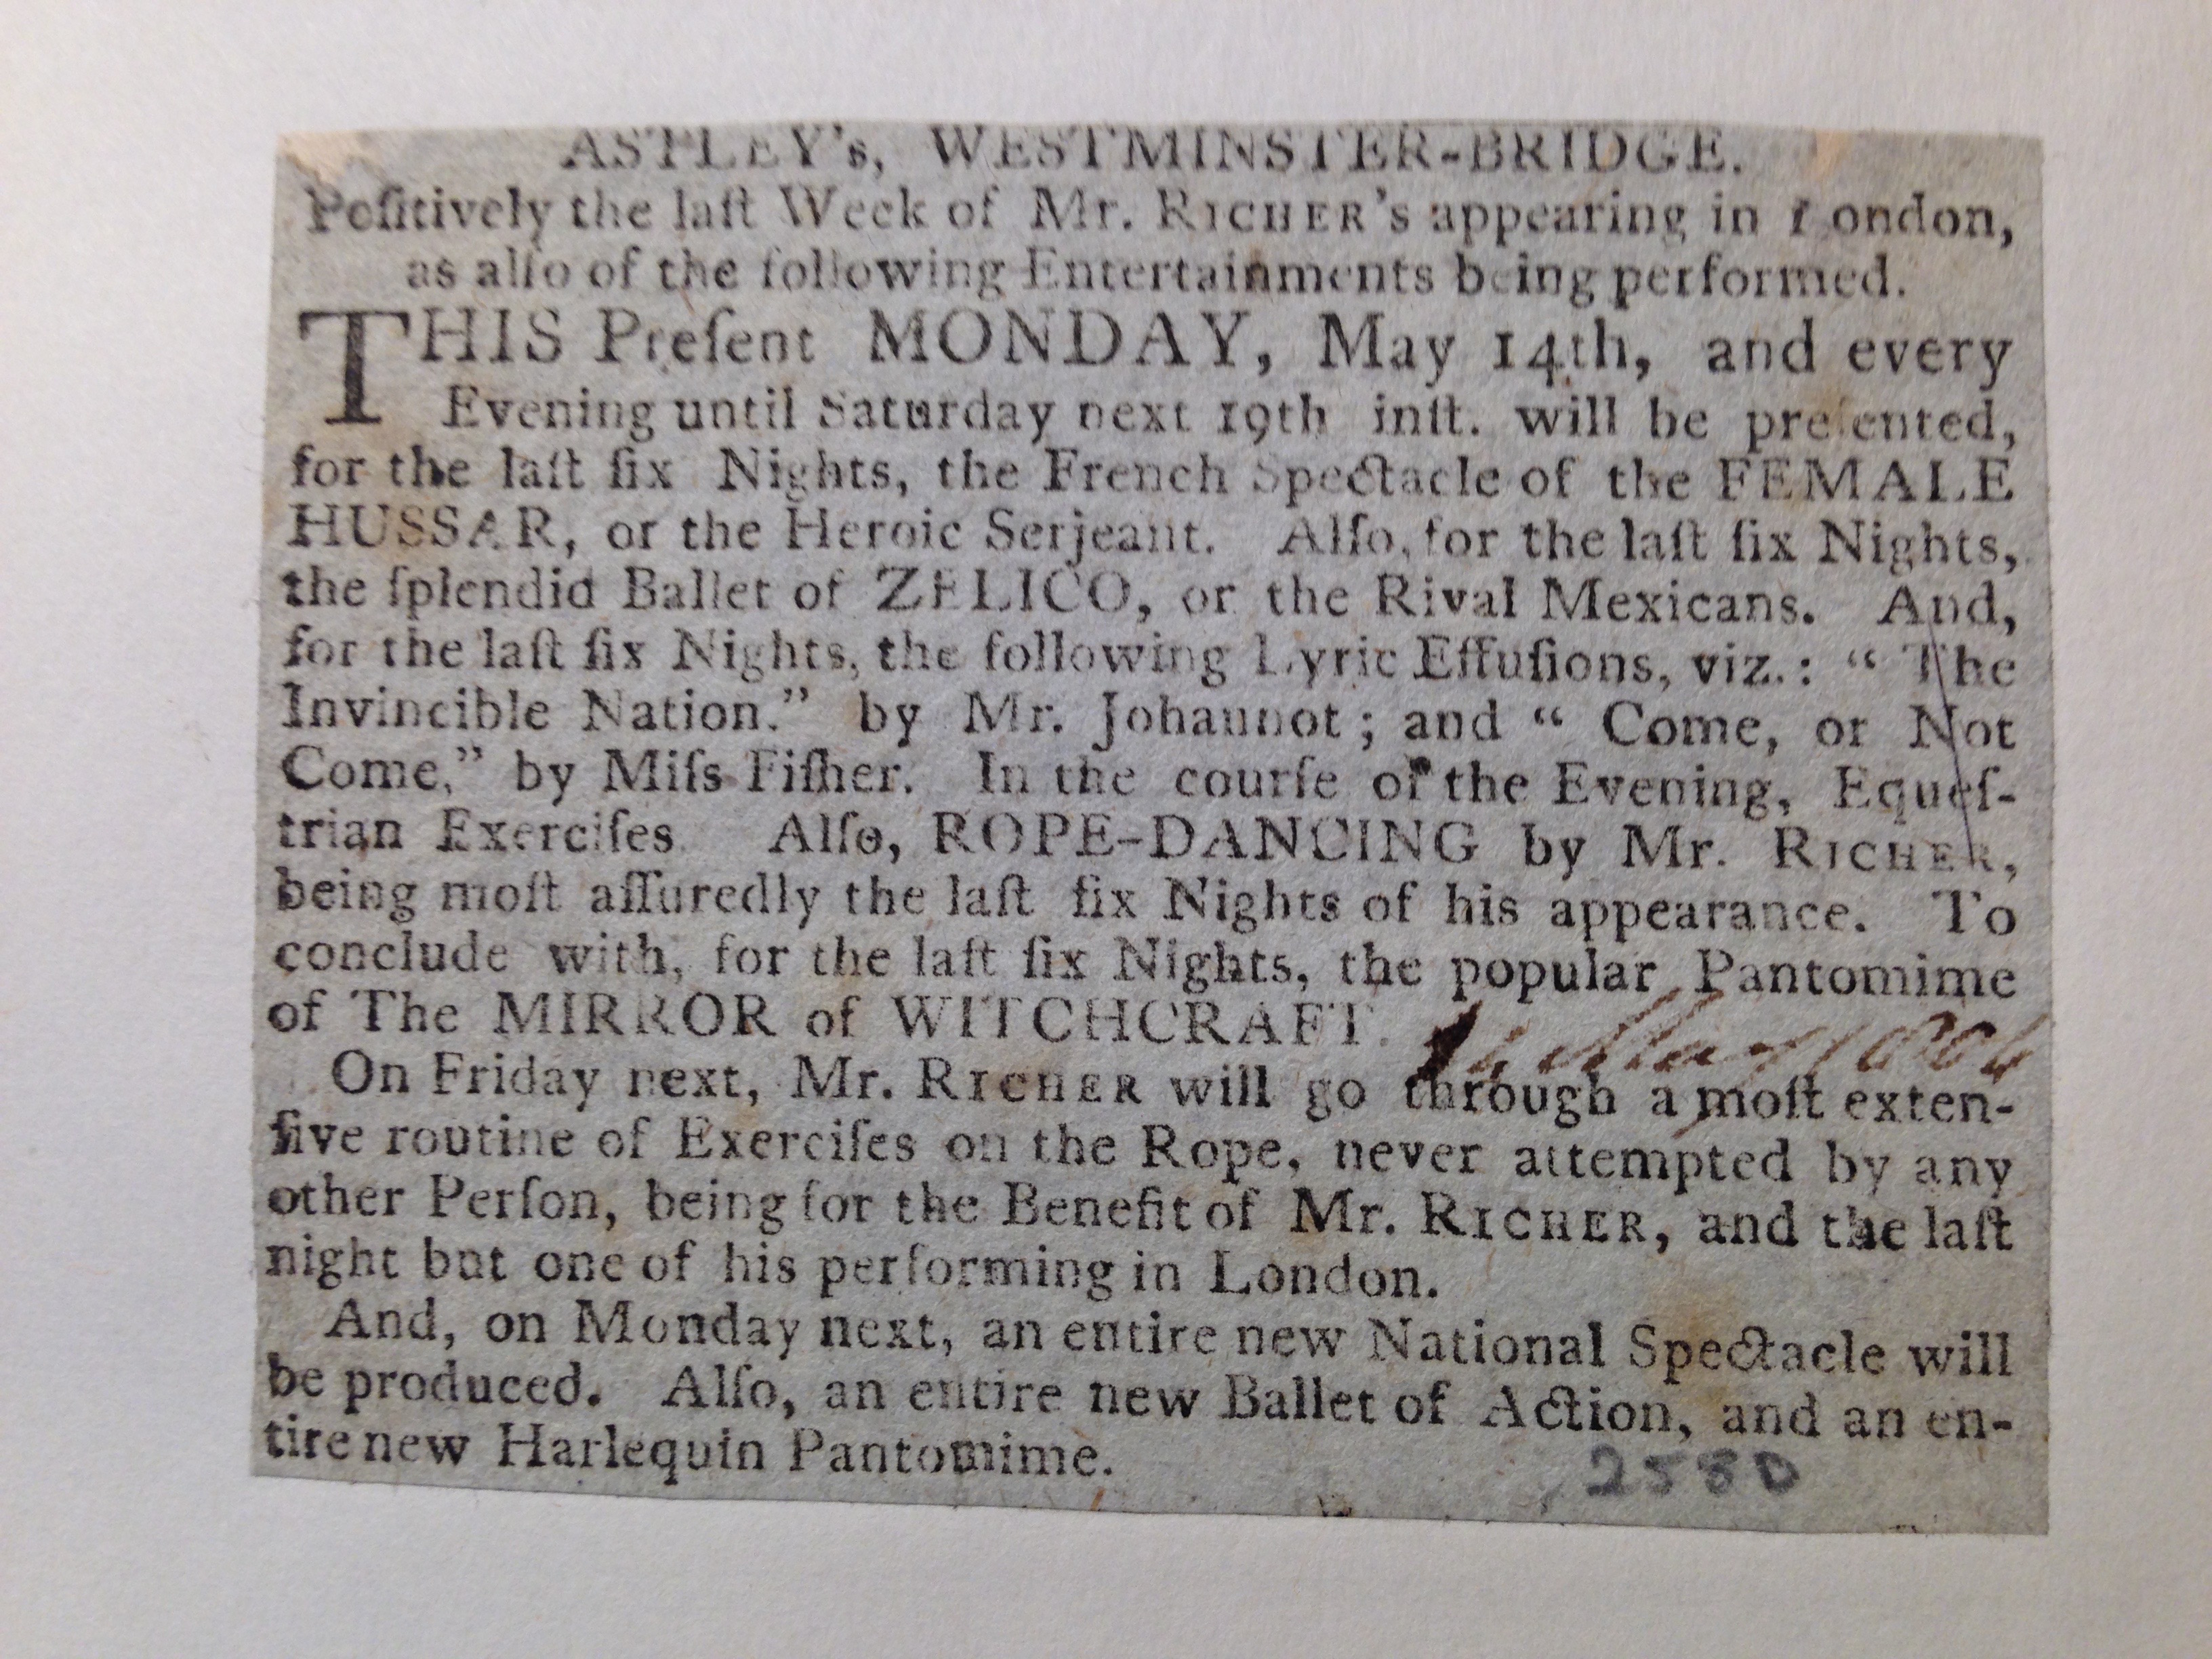 ASTLEY's, WESTMINSTER-BRIDGE.
Poſitively the laſt Week of Mr. RICHER's appearing in London,
as alſo of the following Entertainments being performed.
THIS Preſent MONDAY, May 14th, and every
Evening until Saturday next 19th inſt. will be preſented,
for the laſt ſix Nights, the French Spectacle of the FEMALE
HUSSAR, or the Heroic Serjeant. Alſo, for the laſt ſix Nights,
the ſplendid Ballet of ZELICO, or the Rival Mexicans. And,
for the laſt ſix Nights, the following Lyric Effuſions, viz.: “ The
Invincible Nation.” by Mr. Johannot; and “ Come, or Not
Come,” by Miſs Fiſher. In the courſe of the Evening, Equeſ-
trian Exerciſes. Alſo, ROPE-DANCING by Mr. RICHER,
being moſt aſſuredly the laſt ſix Nights of his appearance. To
conclude with, for the laſt ſix Nights, the popular Pantomime
of The MIRROR of WITCHCRAFT.
14 May 1804
On Friday next, Mr. RICHER will go through a moſt exten-
ſive routine of Exerciſes on the Rope, never attempted by any
other Perſon, being for the Benefit of Mr. RICHER, and the laſt
night but one of his performing in London.
And, on Monday next, an entire new National Spectacle will
be produced. Alſo, an entire new Ballet of Action, and an en-
tire new Harlequin Pantomime.
2580